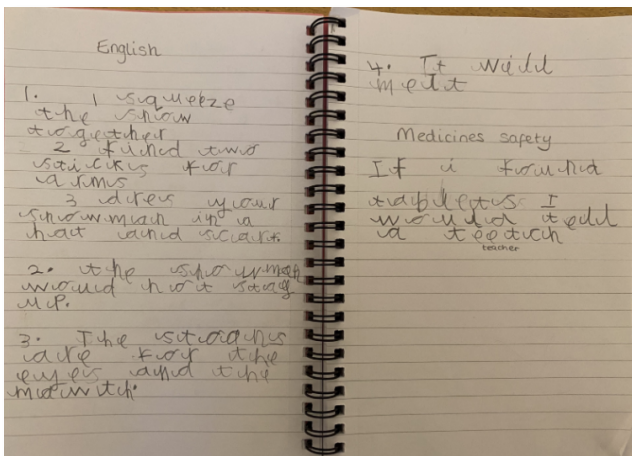 English
1. 1 squeeze
the snow
together
2 find two
sticks for
arms
3 dres your
snowman in a
hat and scarf.
2. the snowman
would not stay
up.
3. The stoans
are for the
eyes and the
mawith.
4. It will
melt
Medicines safety
If i found
tablets I
would tell
a teetch
teacher